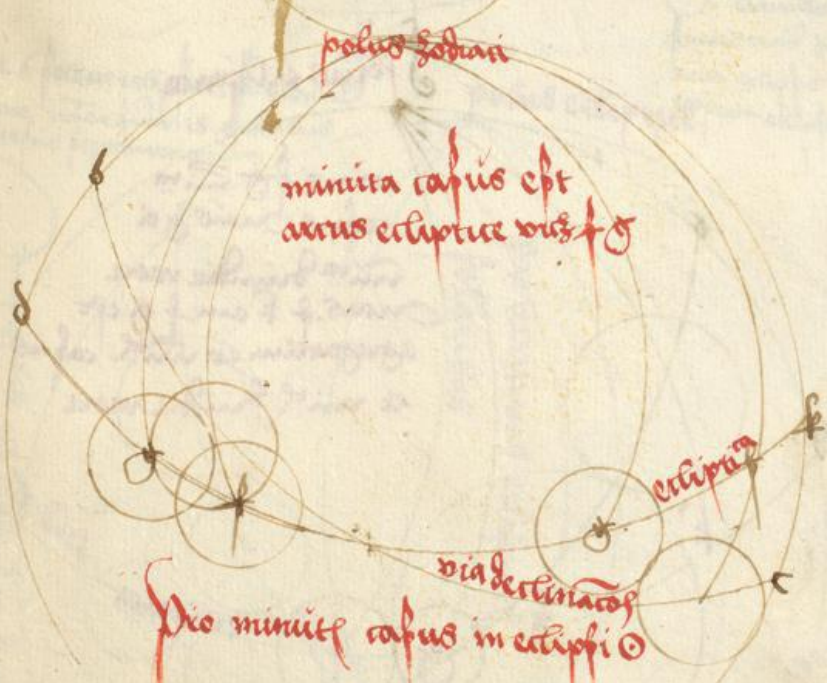 polus zodiaci
b
minuta casus est
arcus ecliptice vicꝫ f g
d
k
ecliptica
f
g
g
f
via declinacōis
c
Pro minutꝭ casus in eclipsi ☉